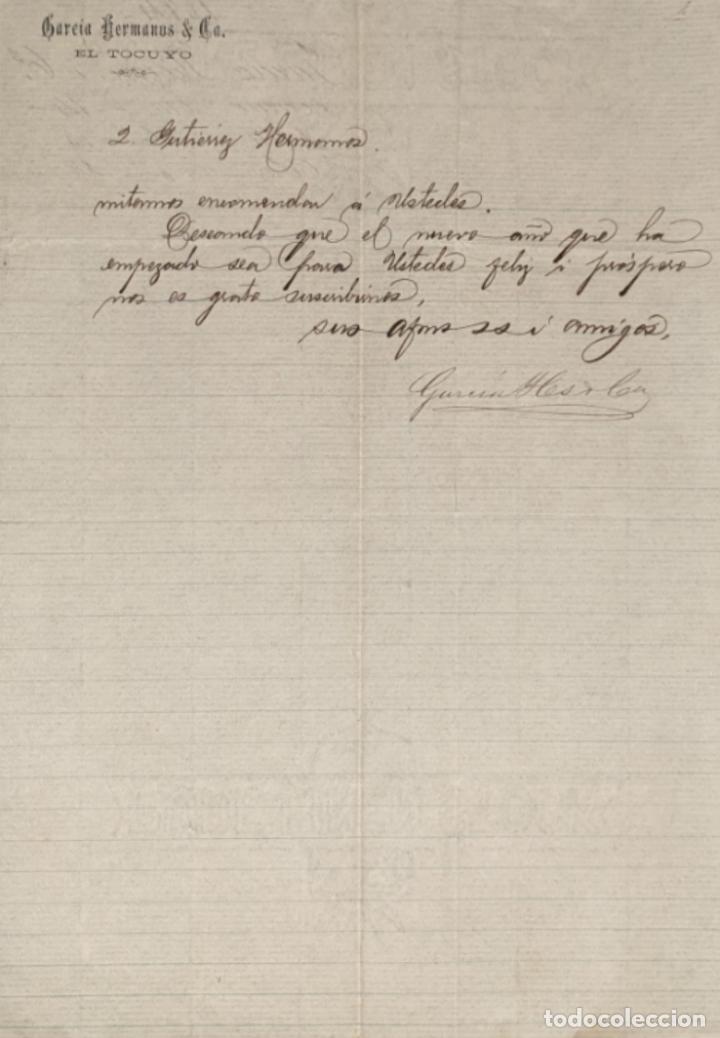 García Hermanos & Ca.
EL TOCUYO
2. Gutiérrez Hermanos.
mitamos encomendar á Ustedes.
Deseando que el nuevo año que ha
empezado sea para Ustedes feliz i próspero
nos es grato suscribirnos,
sus afmos ss i amigos,
García Hs & Ca
todocoleccion